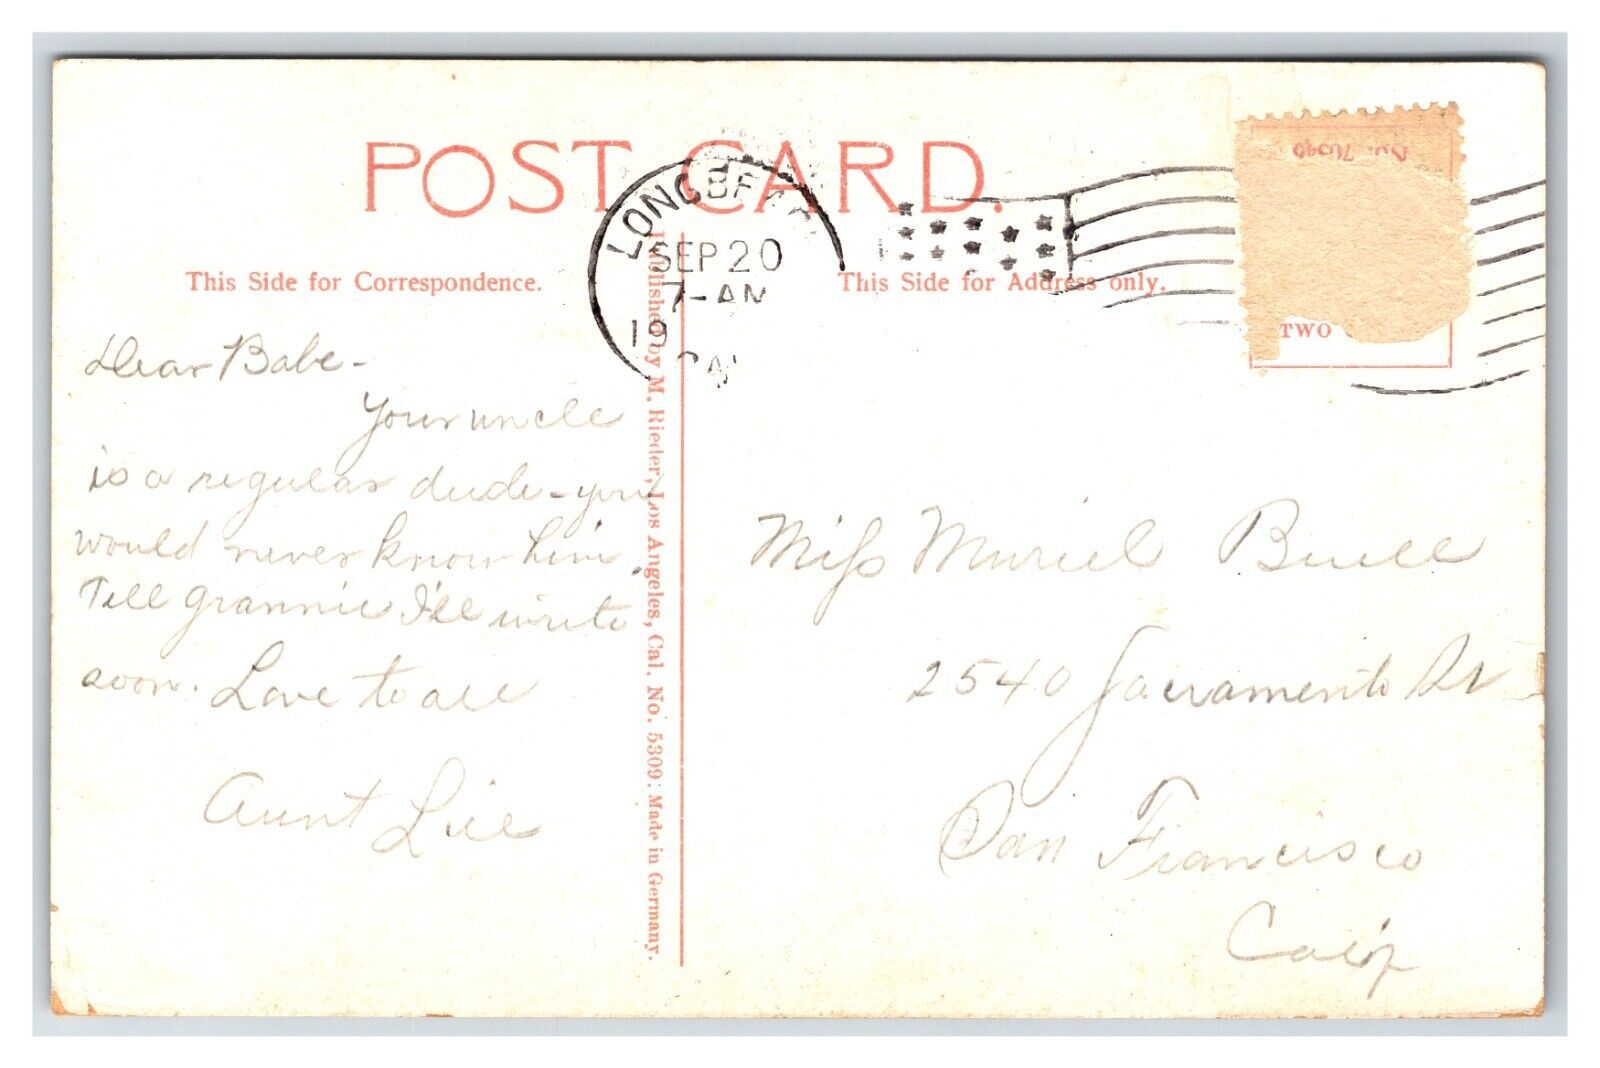 POST CARD.
LONG BEACH
SEP 20
7-AM
19
CAL
This Side for Correspondence.
This Side for Address only.
TWO
Dear Babe-
Your uncle
is a regular dude-you
would never know him.
Tell grannie I'll write
soon. Love to all
Aunt Lill
Published by M. Rieder, Los Angeles, Cal. No. 5309: Made in Germany.
Miss Muriel Buell
2540 Sacramento St
San Francisco
Calif